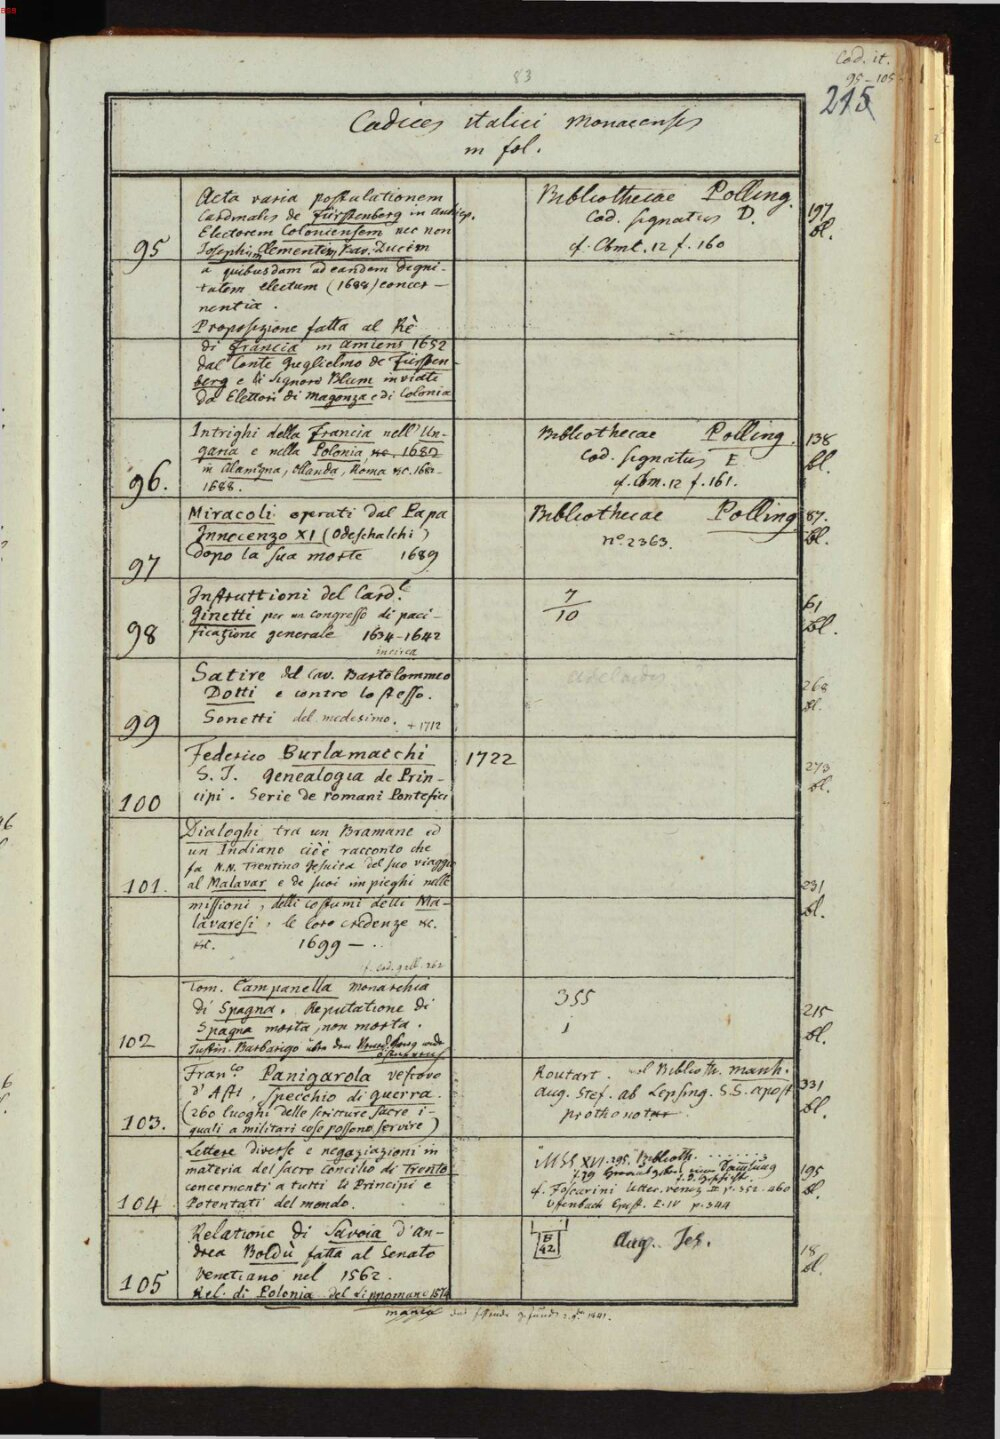 BSB
83
Cod. it.
95-105
215
Codices italici Monacenses
in fol.
Acta varia postulationem
Cardinalis de Fürstenberg in Archiep.
Electorem Coloniensem nec non
95
Josephum Clementem Bav. Ducem
a quibusdam ad eandem digni-
tatem electum (1688) concer-
nentia.
Proposizione fatta al Rè
di Francia in Amiens 1652
dal Conte Guglielmo de Fürsten-
berg e di Signore Blum inviati
da Elettori di Magonza e di Colonia
Bibliothecae Polling.
Cod. signatus D.
cf. Cbm. 12 f. 160
197
bl.
Intrighi della Francia nell' Un-
garia e nella Polonia &c. 1682
in Alamagna, Ollanda, Roma &c. 1680-
96.
1688.
Bibliothecae Polling.
Cod. signatus E
cf. Cbm. 12 f. 161.
138
bl.
Miracoli operati dal Papa
Innocenzo XI (Odeschalchi)
97
dopo la sua morte 1689
Bibliothecae Polling
n° 2363.
87.
bl.
Instruttioni del Card.l
Ginetti per un congresso di paci-
98
ficazione generale 1634-1642
incirca
7
10
61
bl.
Satire del Cav. Bartolommeo
Dotti e contro lo stesso.
99
Sonetti del medesimo. +1712
268
bl.
Federico Burlamacchi
S. J. Genealogia de Prin-
100
cipi. Serie de romani Pontefici
1722
273
bl.
Dialoghi tra un Bramane ed
un Indiano cioè racconto che
fa N.N. Trentino Gesuita del suo viaggio
101.
al Malavar e de suoi impieghi nelle
missioni, delli costumi delli Ma-
lavaresi, le loro credenze &c.
&c. 1699 —
f. Cod. gall. 262
231
bl.
Tom. Campanella monarchia
di Spagna. Reputatione di
102
Spagna morta, non morta.
Justin. Barbarigo über den
355
1
215
bl.
Fran.co Panigarola vescovo
d' Asti, Specchio di guerra.
(260 luoghi delle scritture sacre i-
103.
quali a militari cose possono servire)
Routart. Biblioth. manh.
Aug. Stef. ab Lepsing. S.S. apost
prothonotar
331
bl.
Lettere diverse e negoziazioni in
materia del sacro Concilio di Trento
concernenti a tutti li Principi e
104
Potentati del mondo.
MSS XVI. 295. Biblioth. . . . . . .
cf. Foscarini letter. venez. II p. 352. 460
Uffenbach Epist. T. IV p. 344
195
bl.
Relatione di Savoia d'An-
drea Boldù fatta al Senato
Venetiano nel 1562.
105
Rel. di Polonia del Lippomano 1574
E
42
Aug. Jes.
18
bl.
manca
1841.